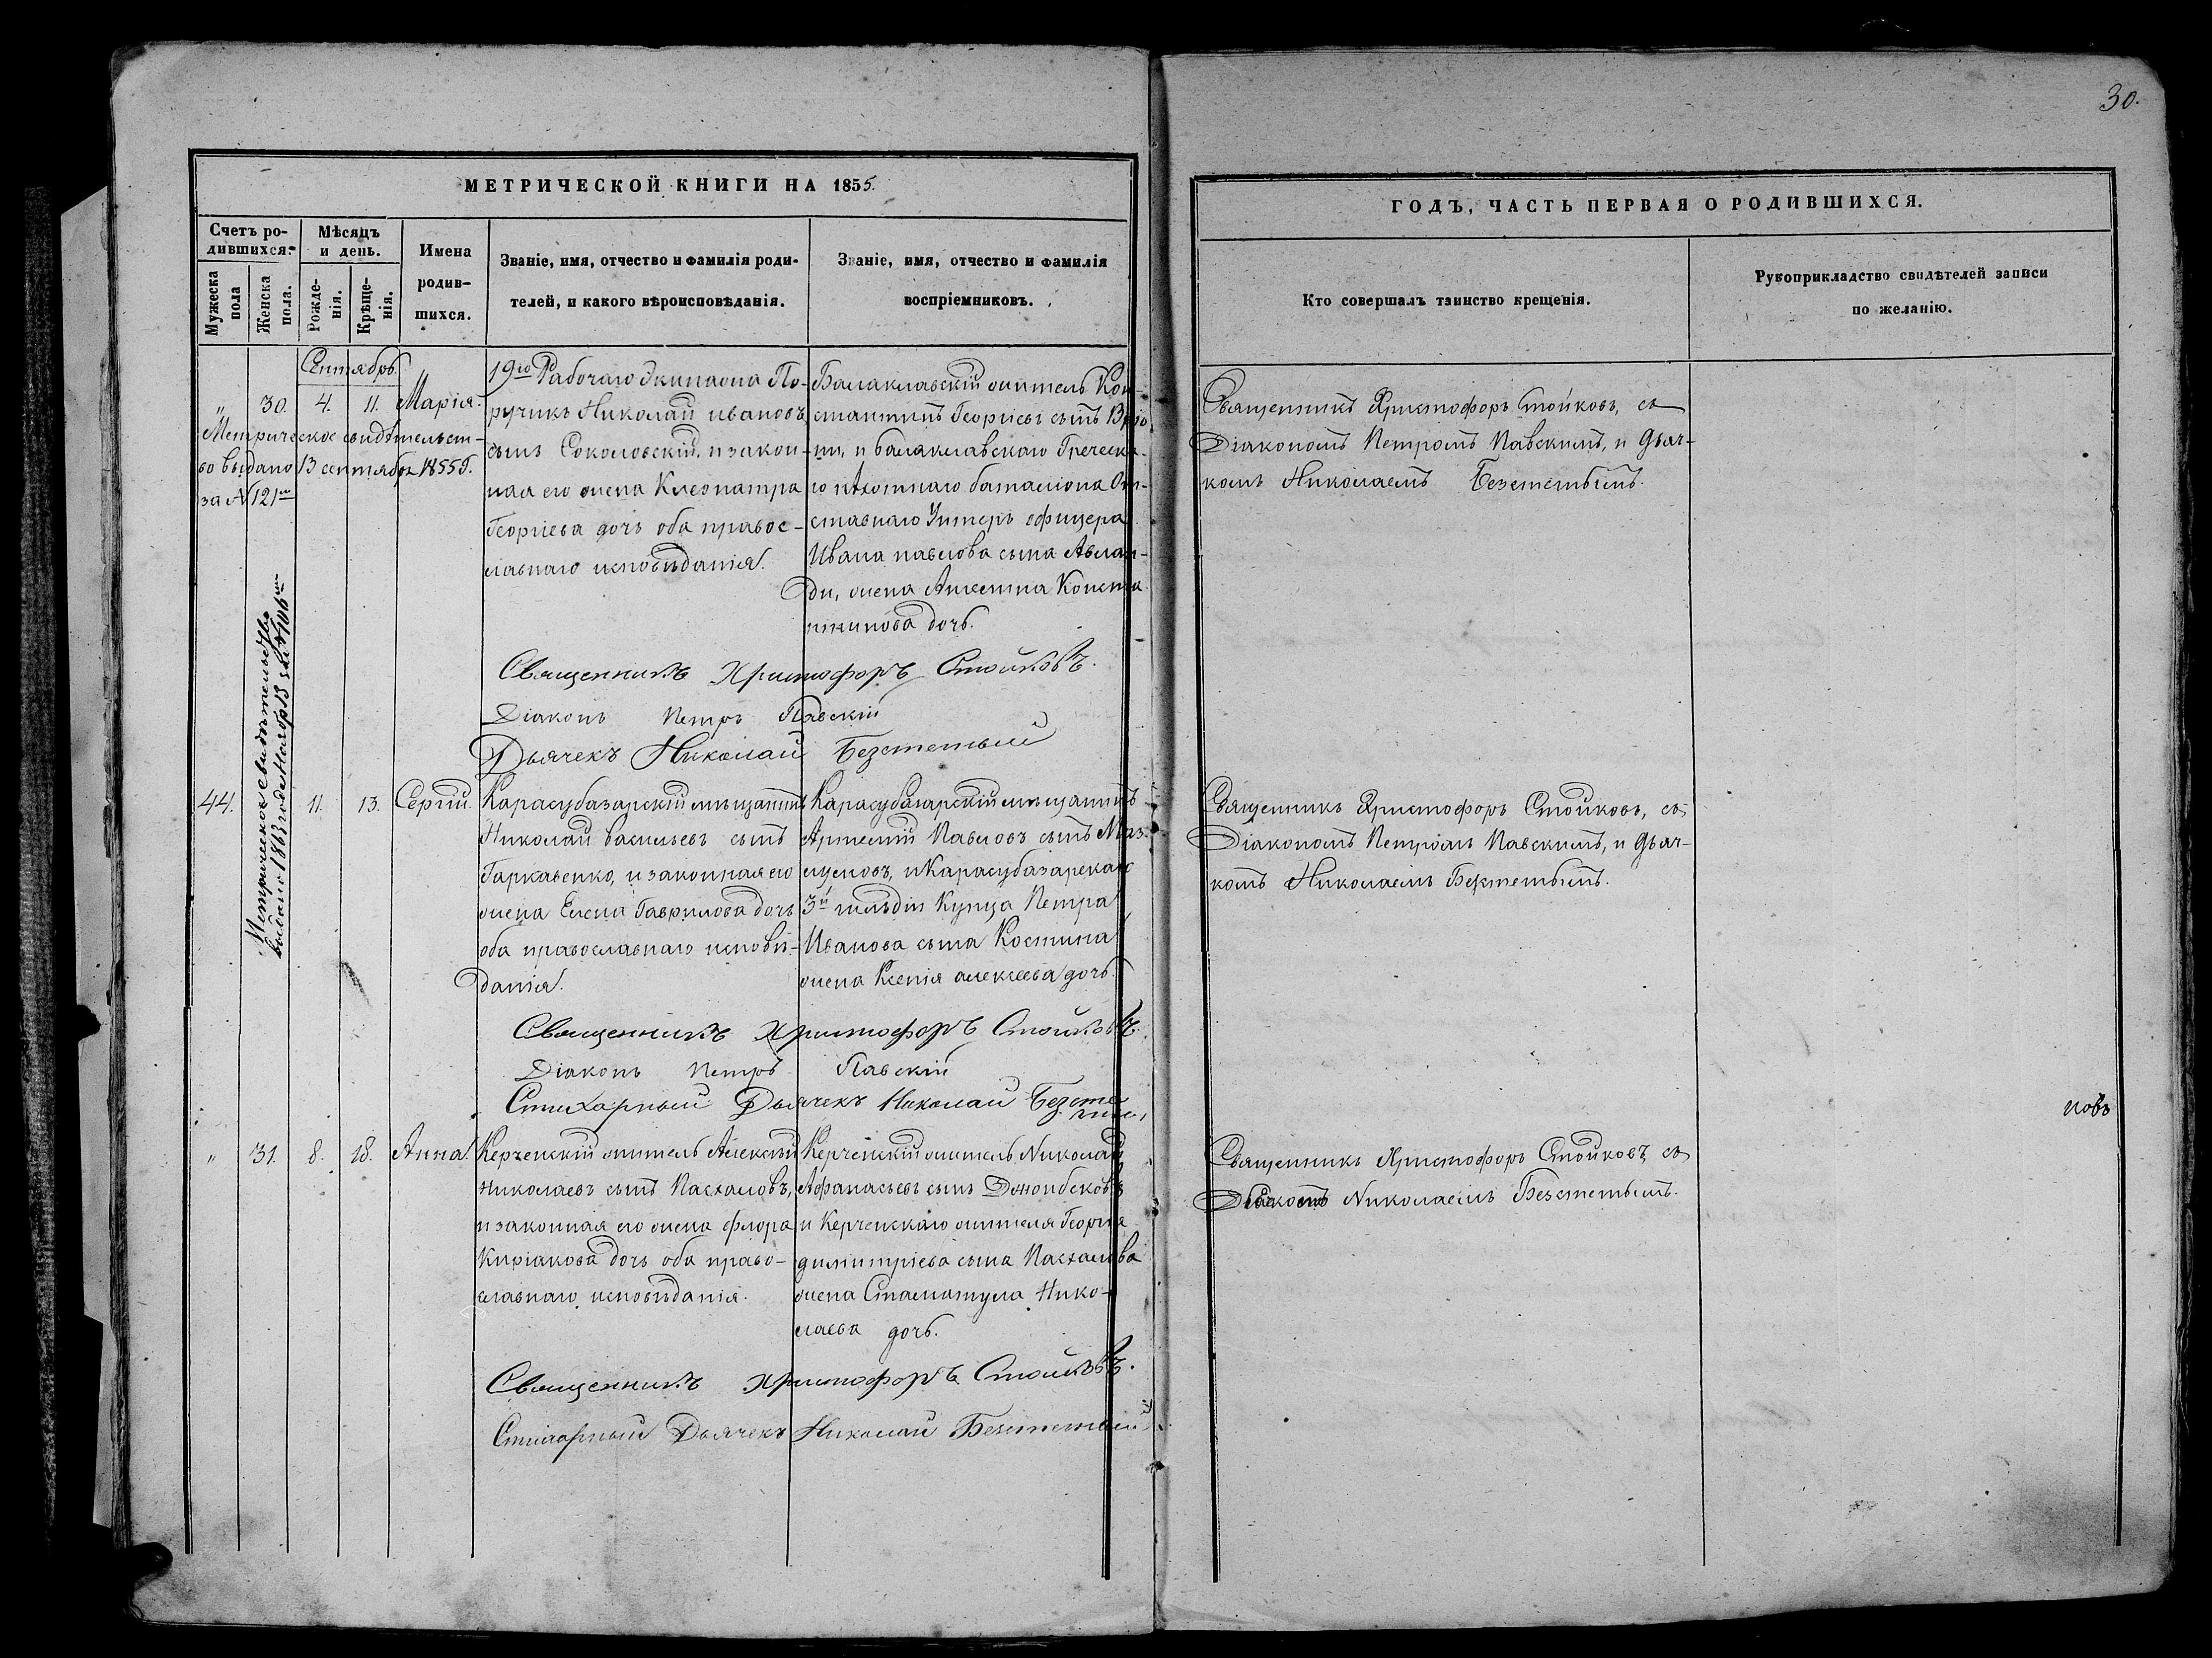 30.
МЕТРИЧЕСКОЙ КНИГИ НА 1855.
ГОДЪ, ЧАСТЬ ПЕРВАЯ О РОДИВШИХСЯ.
Счетъ ро-
дившихся.
Мужеска
пола
Женска
пола.
Мѣсяцъ
и день.
Рожде-
нія.
Крѣще-
нія.
Имена
родив-
шихся.
Званіе, имя, отчество и фамилія роди-
телей, и какого вѣроисповѣданія.
Званіе, имя, отчество и фамилія
воспріемниковъ.
Кто совершалъ таинство крещенія.
Рукоприкладство свидѣтелей записи
по желанію.
Сентябрь.
„ 30. 4. 11. Марія.
Метрическое свидѣтельст-
во выдано 13 сентября 1855 г.
за № 121
19го Рабочаго Экипажа По-
ручикъ Николай ивановъ
сынъ Соколовскій, и закон-
ная его жена Клеопатра
Георгіева дочь оба правос-
лавнаго исповѣданія.
Балаклавскій житель Кон-
стантинъ Георгіевъ сынъ
и балаклавскаго Греческа-
го пѣхотнаго баталіона От-
ставнаго Унтеръ офицера
Ивана павлова сына Авлан-
ди, жена Ангелина Конста
нтинова дочь.
Священникъ Христофоръ Стойковъ, съ
Діакономъ Петромъ Павскимъ, и Дьяч-
комъ Николаемъ Безстетымъ.
Священникъ Христофоръ Стойковъ.
Діаконъ Петръ Павскій
Дьячекъ Николай Безстетый
Метрическое свидѣтельство
выдано 1863 года Ноябр 13 за № 106
44. 11. 13. Сергій.
Карасубазарскій мѣщанинъ
Николай васильевъ сынъ
Гаркавенко, и законная его
жена Елена Гаврилова дочь
оба православнаго исповѣ-
данія.
Карасубазарскій мѣщанинъ
Артемій Павловъ сынъ
и Карасубазарскаго
3й гильдіи Купца Петра
Иванова сына Костина
жена Ксенія алексеева дочь.
Священникъ Христофоръ Стойковъ, съ
Діакономъ Петромъ Павскимъ, и Дьяч-
комъ Николаемъ Безстетымъ.
Священникъ Христофоръ Стойковъ.
Діаконъ Петръ Павскій
Стихарный Дьячекъ Николай Безсте
тый
„ 31. 8. 18. Анна.
Керченскій житель Алексѣй
Николаевъ сынъ Пасхаловъ,
и законная его жена флора
Киріакова дочь оба право-
славнаго исповѣданія.
Керченскій житель Николай
Афанасьевъ сынъ Джонбековъ
и Керченскаго жителя Георгія
димитріева сына Пасхалова
жена Стаматула Нико-
лаева дочь.
новъ
Священникъ Христофоръ Стойковъ, съ
Николаемъ Безстетымъ.
Священникъ Христофоръ Стойковъ.
Стихарный Дьячекъ Николай Безстетый